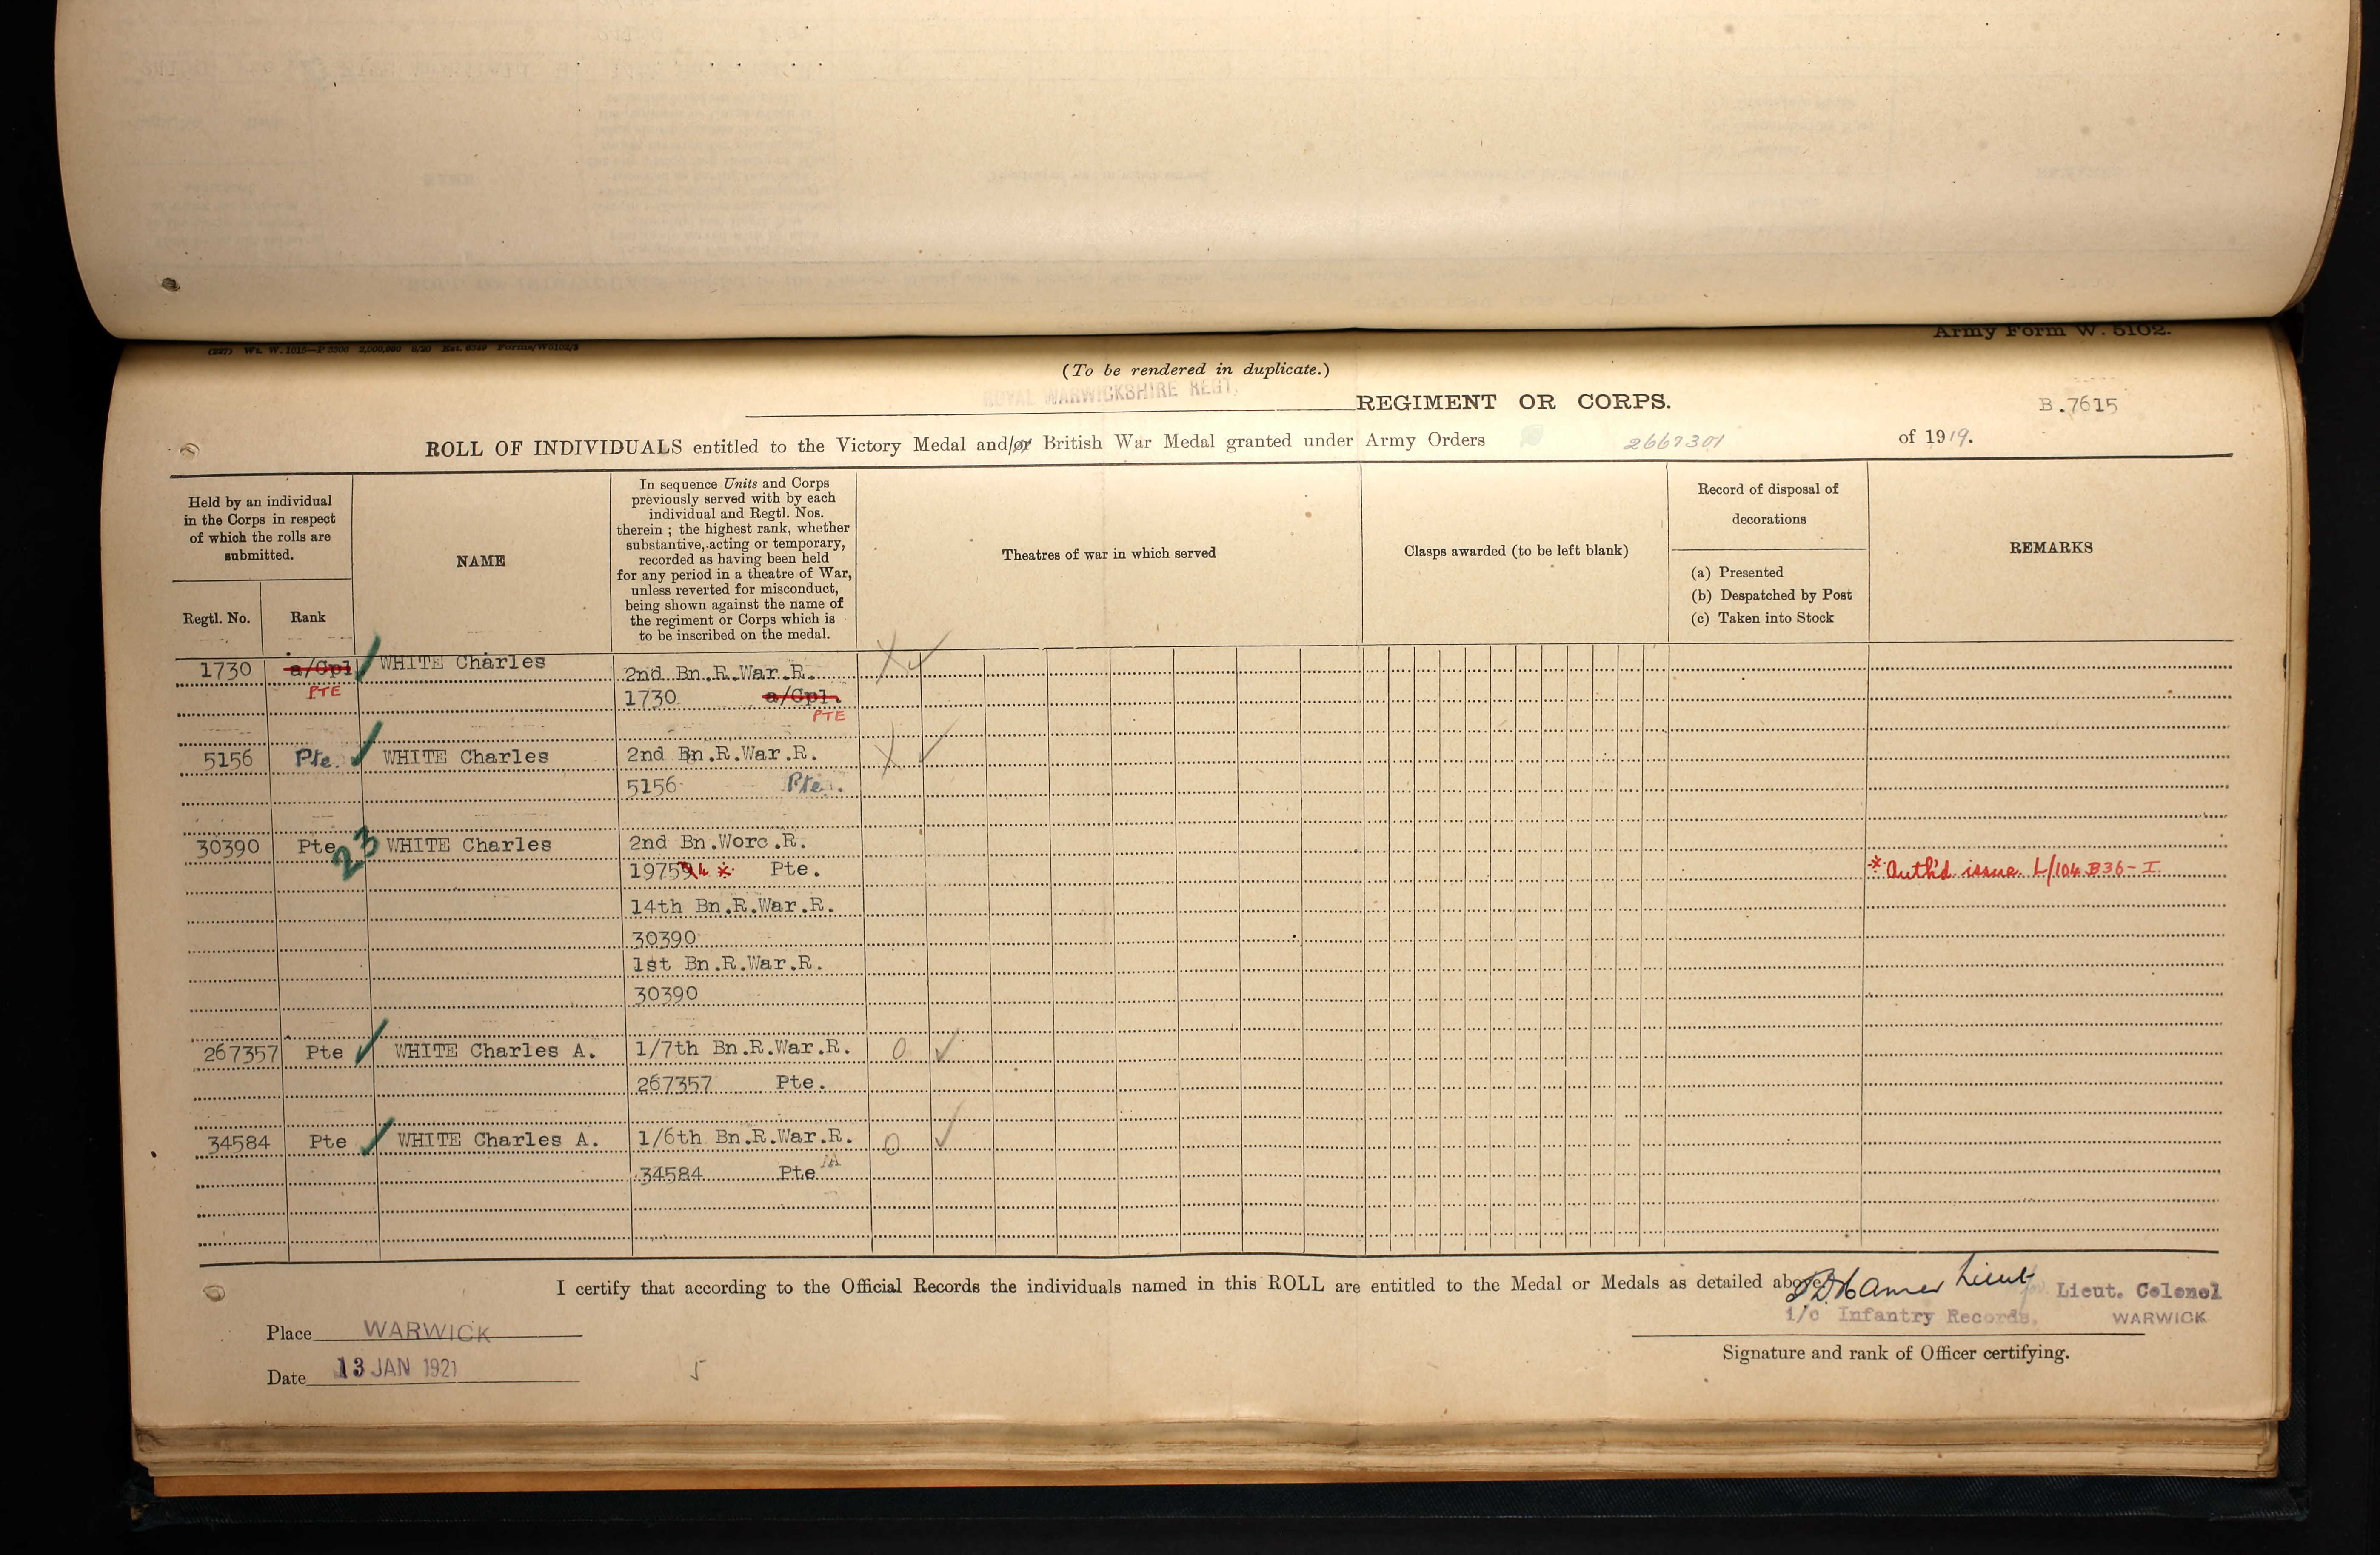 Army Form W. 5102.
(227) Wt. W. 1015—P 3306 2,000,000 8/20 Est. 6349 Forms/W5102/3
(To be rendered in duplicate.)
ROYAL WARWICKSHIRE REGT. REGIMENT OR CORPS.
B.7615
ROLL OF INDIVIDUALS entitled to the Victory Medal and/or British War Medal granted under Army Orders 266&301 of 1919.
Held by an individual
in the Corps in respect
of which the rolls are
submitted.
Regtl. No. Rank
NAME
In sequence Units and Corps
previously served with by each
individual and Regtl. Nos.
therein ; the highest rank, whether
substantive, acting or temporary,
recorded as having been held
for any period in a theatre of War,
unless reverted for misconduct,
being shown against the name of
the regiment or Corps which is
to be inscribed on the medal.
Theatres of war in which served
Clasps awarded (to be left blank)
Record of disposal of
decorations
(a) Presented
(b) Despatched by Post
(c) Taken into Stock
REMARKS
1730 a/Cpl WHITE Charles 2nd Bn.R.War.R.
PTE 1730 a/Cpl.
PTE
5156 Pte. WHITE Charles 2nd Bn.R.War.R.
5156 Pte.
30390 Pte 23 WHITE Charles 2nd Bn.Worc.R.
19759 4 * Pte. * Auth'd issue L/104 B36-I.
14th Bn.R.War.R.
30390
1st Bn.R.War.R.
30390
267357 Pte WHITE Charles A. 1/7th Bn.R.War.R. O
267357 Pte.
34584 Pte WHITE Charles A. 1/6th Bn.R.War.R. O
34584 Pte
I certify that according to the Official Records the individuals named in this ROLL are entitled to the Medal or Medals as detailed above.
Lieut for Lieut. Colonel
i/c Infantry Records, WARWICK
Place WARWICK
Signature and rank of Officer certifying.
Date 13 JAN 1921
5